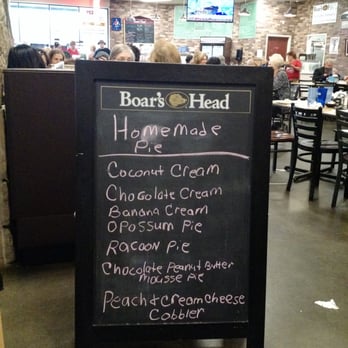 Boar's Head
Homemade
Pie
Coconut Cream
Chocolate Cream
Banana Cream
Opossum Pie
Racoon Pie
Chocolate Peanut Butter
Mousse Pie
Peach & Creamcheese
Cobbler